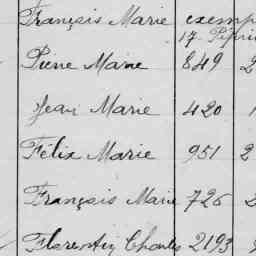 François Marie exemp
17
Pierre Marie 849 2
Jean Marie 420 1
Félix Marie 951 2
François Marie 726 2
Florentin Charles 2193